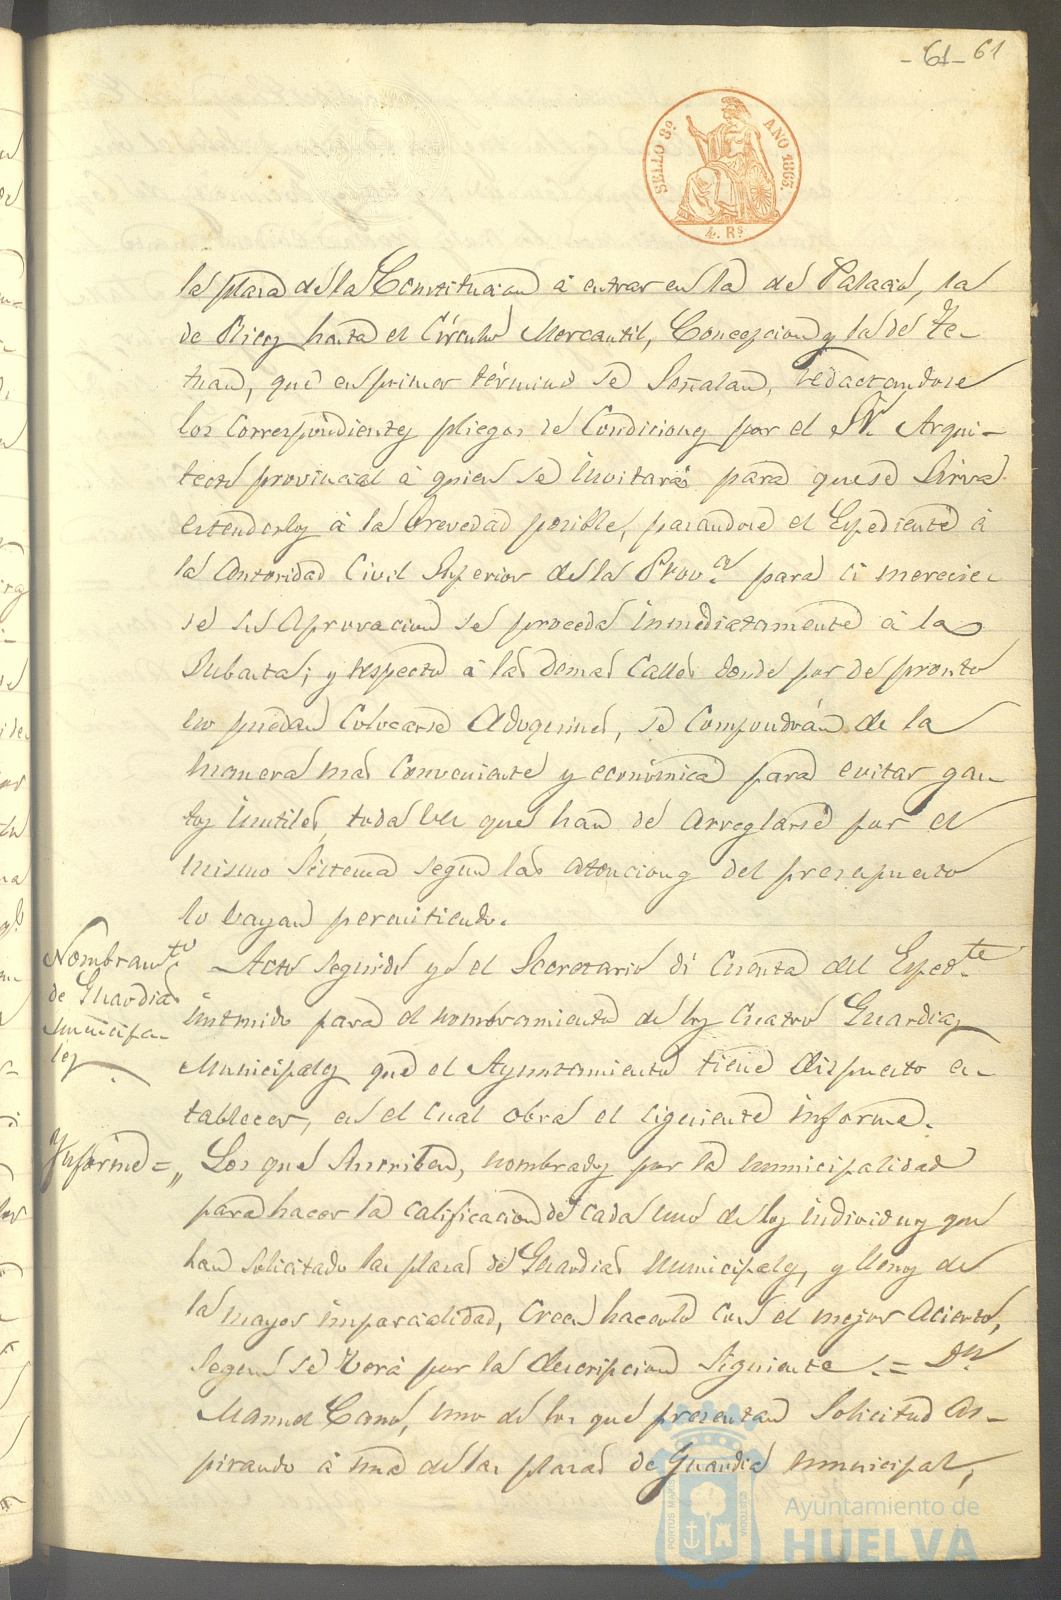 -61- 61
SELLO 8º AÑO 1865.
4 Rs
la plaza de la Constitucion á entrar en la de Palacio, la
de Ricos hasta el Círculo Mercantil, Concepcion y la de Te-
tuan, que en primer término se Señalan, redactandose
los Correspondientes pliegos de Condiciones por el Sr. Arqui-
tecto provincial á quien se invitará para que se Sirva
estenderlos á la brevedad posible, pasandose el Espediente á
la Autoridad Civil Superior de la Prov.a para si merecie-
se su Aprovacion se proceda inmediatamente á la
Subasta; y respecto á las demas Calles donde por de pronto
no puedan Colocarse Adoquines, se Compondrán de la
manera mas Conveniente y económica para evitar gas-
tos inutiles, toda vez que han de Arreglarse por el
mismo Sistema segun las atenciones del presupuesto
lo vayan permitiendo.
Nombram.to
de Guardias
municipa-
les
Acto seguido yó el Secretario di Cuenta del Exped.te
instruido para el nombramiento de los Cuatro Guardias
Municipales que el Ayuntamiento tiene dispuesto es-
tablecer, en el Cual obra el siguiente informe.
Informe=
„ Los que Suscriben, nombrados por la municipalidad
para hacer la Calificacion de cada uno de los individuos que
han Solicitado las plazas de Guardias Municipales, y llenos de
la mayor imparcialidad, Creen hacerlo con el mejor Acierto,
segun se verá por la descripcion Siguiente.= Dn
Manuel Cano, uno de los que presentan Solicitud As-
pirando á una de las plazas de Guardia Municipal,
PORTUS MARIS
CUSTODIA
Ayuntamiento de
HUELVA